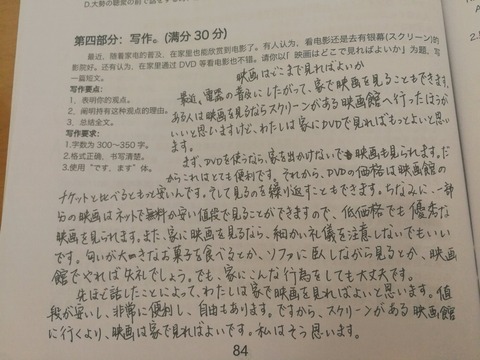 D.大勢の聴衆の前で話をする
第四部分：写作。(满分 30 分)
最近，随着家电的普及，在家里也能欣赏到电影了。有人认为，看电影还是去有银幕(スクリーン)的
影院好。还有认为，在家里通过 DVD 等看电影也不错。请你以「映画はどこで見ればよいか」为题，写
一篇短文。
写作要点：
1、表明你的观点。
2、阐明持有这种观点的理由。
3、总结全文。
写作要求：
1.字数为 300～350 字。
2.格式正确，书写清楚。
3.使用“です、ます”体。
映画はどこまで見ればよいか
最近、電器の普及にしたがって、家で映画を見ることもできます。
ある人は映画を見るならスクリーンがある映画館へ行ったほうが
いいと思いますけど、わたしは家にDVDで見ればもっとよいと思い
ます。
まず、DVDを使うなら、家を出かけないでも映画も見られます。だ
からこれはとても便利です。それから、DVDの価格は映画館の
チケットと比べるともっと安いんです。そして見るのを繰り返すこともできます。ちなみに、一部
分の映画はネットで無料か安い値段で見ることができますので、低価格でも優秀な
映画を見られます。また、家に映画を見るなら、細かい礼儀を注意しないでもいい
です。匂いが大きなお菓子を食べるとか、ソファに臥しながら見るとか、映画
館でやれば失礼でしょう。でも、家にこんな行為をしても大丈夫です。
先ほど話したことによって、わたしは家で映画を見ればよいと思います。値
段が安いし、非常に便利し、自由もあります。ですから、スクリーンがある映画館
に行くより、映画は家で見ればよいです。私はそう思います。
84